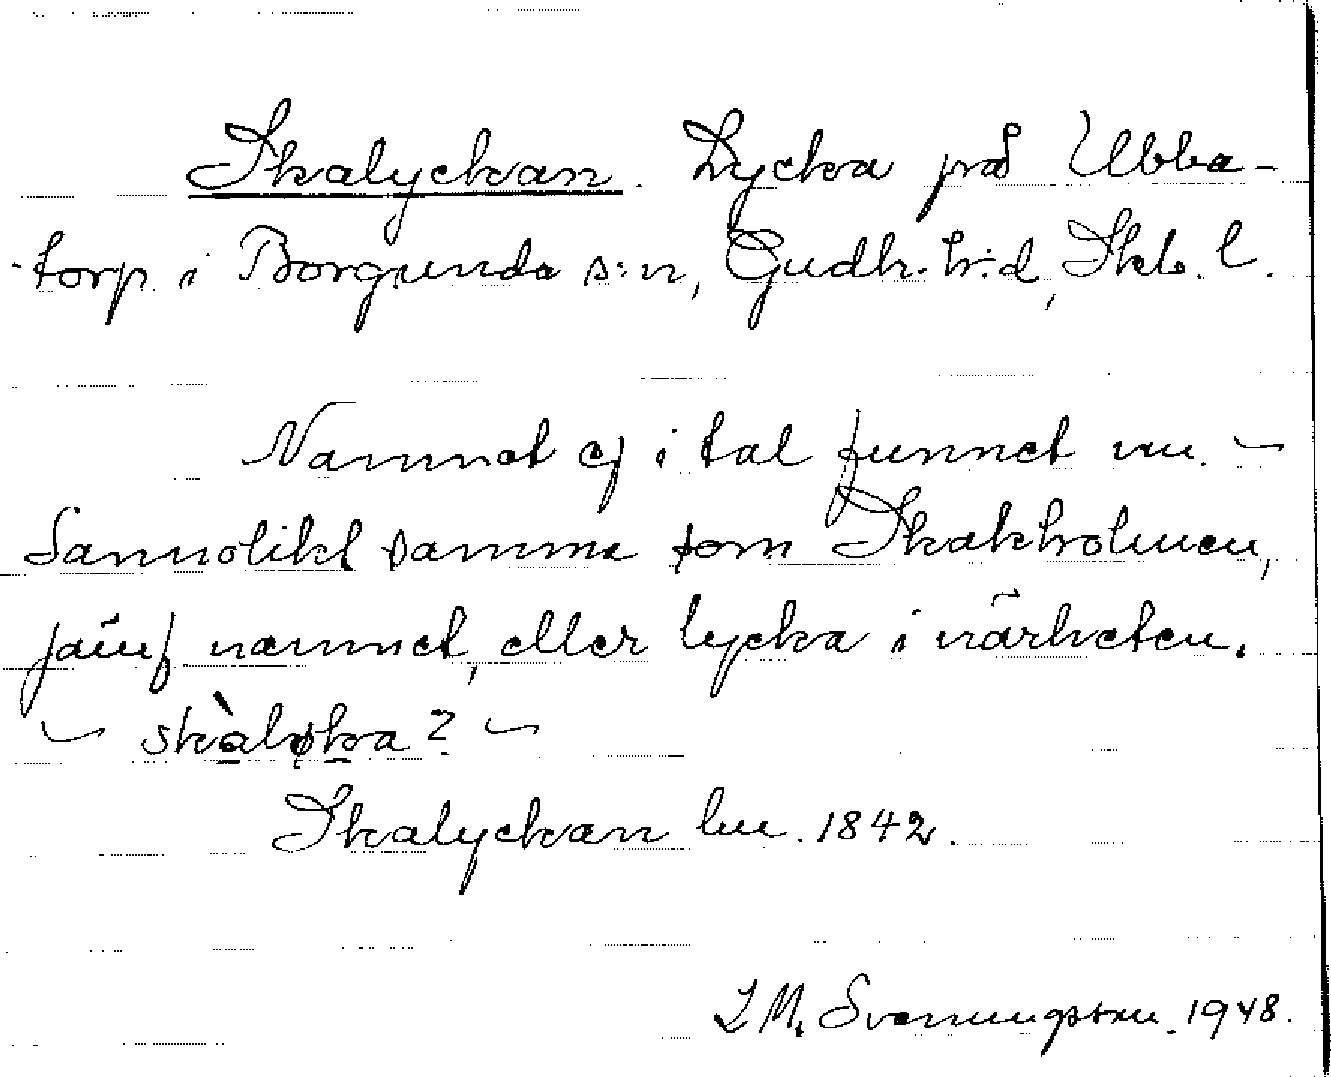 Skalyckan. Lycka på Ubba-
torp i Borgunda s:n, Gudh. h:d, Skb. l.
Namnet ej i tal funnet nu. –
Sannolikt samma som Skakholmen,
jämf namnet, eller lycka i närheten.
– skàløka? –
Skalyckan lm. 1842.
L M. Svenungsson. 1948.